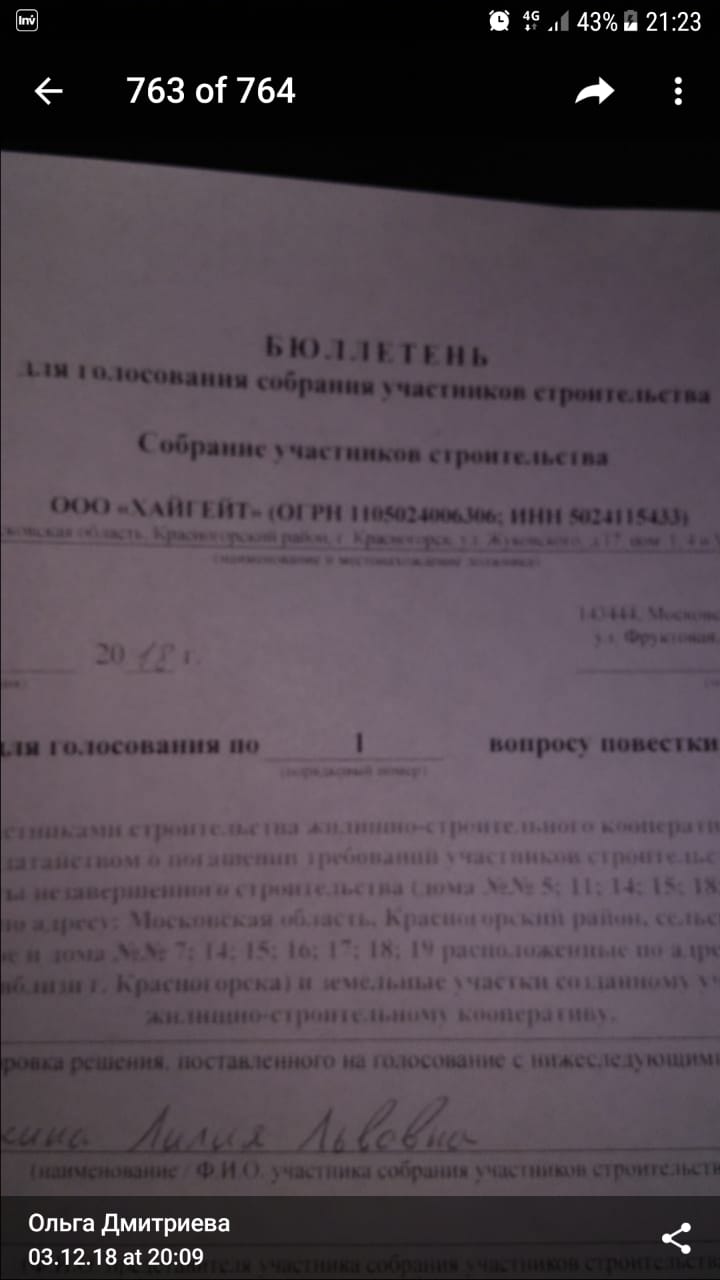 Inv 4G 43% 21:23
763 of 764
БЮЛЛЕТЕНЬ
для голосования собрания участников строительства
Собрание участников строительства
ООО «ХАЙГЕЙТ» (ОГРН 1105024006306; ИНН 5024115433)
сковская область, Красногорский район, г. Красногорск, ул. Жуковского, д.17, пом. 1, 4 и
(наименование и местонахождение должника)
143444, Москов
20 18 г. ул. Фруктовая,
для голосования по 1 вопросу повестки
(порядковый номер)
стниками строительства жилищно-строительного кооператив
датайством о погашении требований участников строительс
ты незавершенного строительства (дома №№ 5; 11; 14; 15; 18;
по адресу: Московская область, Красногорский район, сельс
ие и дома №№ 7; 14; 15; 16; 17; 18; 19 расположенные по адре
вблизи г. Красногорска) и земельные участки созданному уч
жилищно-строительному кооперативу.
ровка решения, поставленного на голосование с нижеследующими
кина Лилия Львовна
(наименование / Ф.И.О. участника собрания участников строительств
Ольга Дмитриева
03.12.18 at 20:09
представителя участника собрания участников строительс